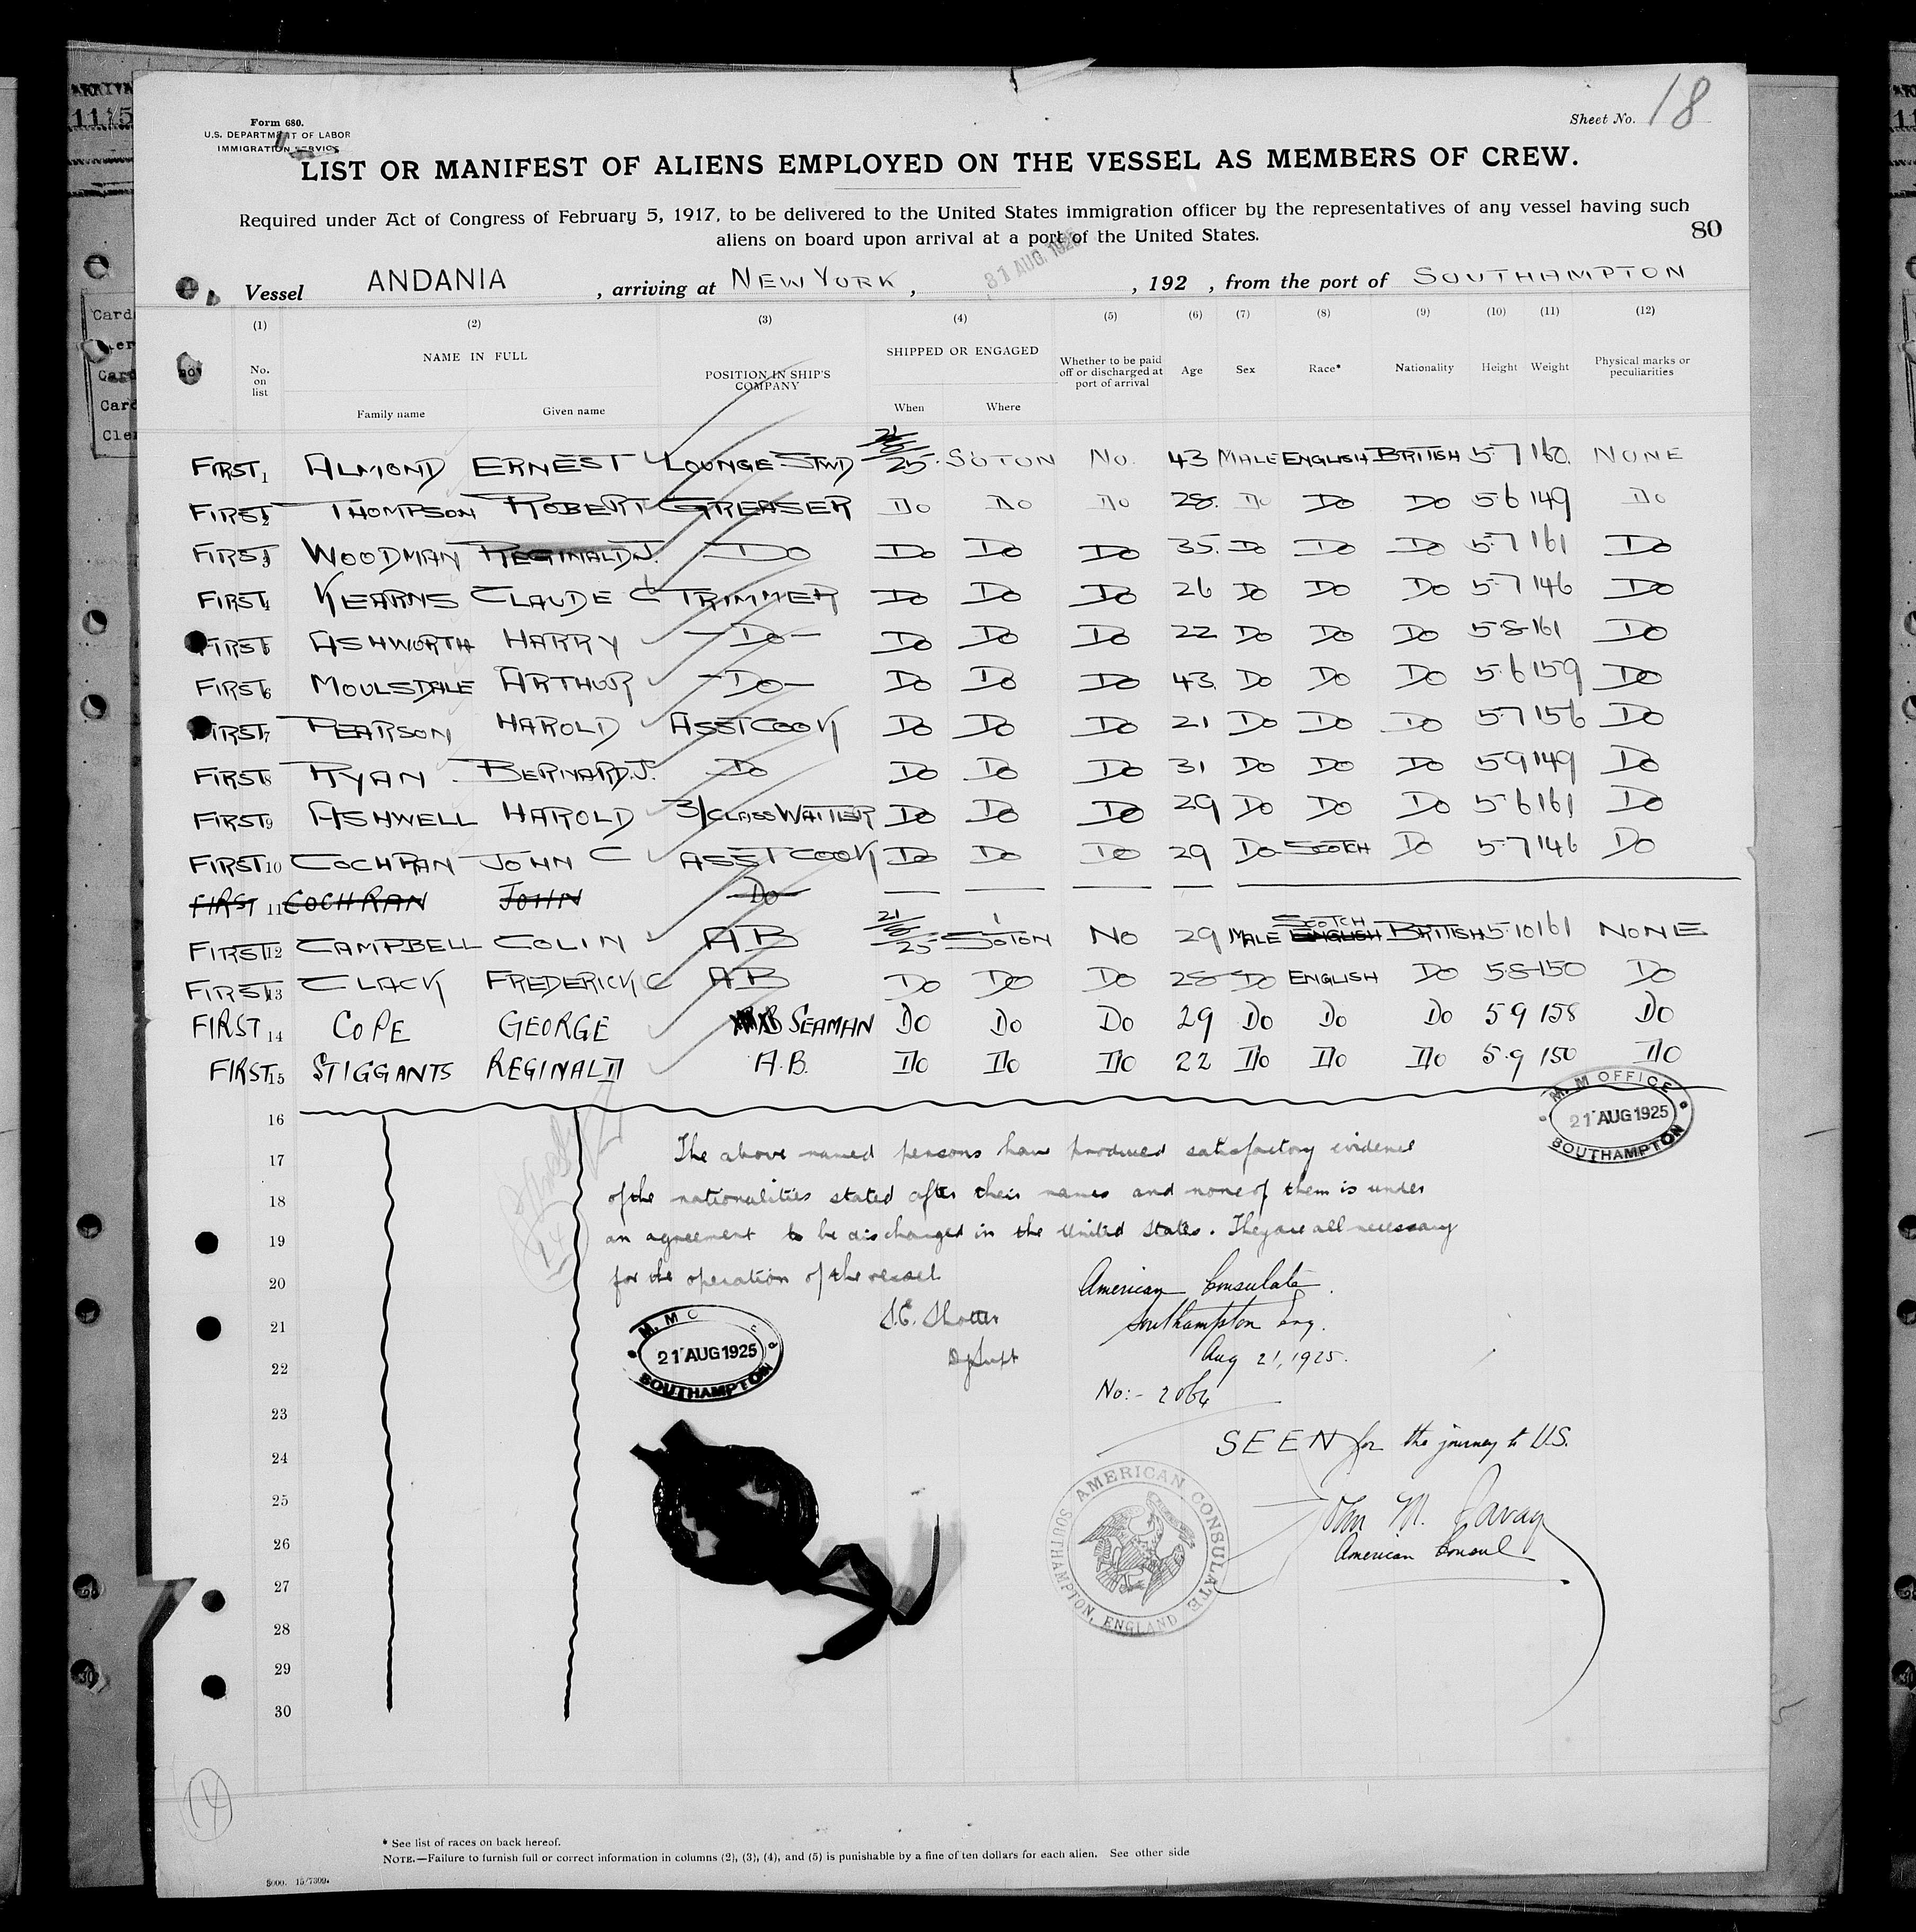 Form 680.
U.S. DEPARTMENT OF LABOR
IMMIGRATION SERVICE
Sheet No. 18
LIST OR MANIFEST OF ALIENS EMPLOYED ON THE VESSEL AS MEMBERS OF CREW.
Required under Act of Congress of February 5, 1917, to be delivered to the United States immigration officer by the representatives of any vessel having such
aliens on board upon arrival at a port of the United States.
80
31 AUG. 1925
Vessel ANDANIA , arriving at NEW YORK , , 192 , from the port of SOUTHAMPTON
(1) (2) (3) (4) (5) (6) (7) (8) (9) (10) (11) (12)
No. on list NAME IN FULL POSITION IN SHIP'S COMPANY SHIPPED OR ENGAGED Whether to be paid off or discharged at port of arrival Age Sex Race* Nationality Height Weight Physical marks or peculiarities
Family name Given name When Where
FIRST 1 ALMOND ERNEST LOUNGE STWD 21/8/25 SOTON NO. 43 MALE ENGLISH BRITISH 5-7 160 NONE
FIRST 2 THOMPSON ROBERT GREASER DO DO DO 28 DO DO DO 5-6 149 DO
FIRST 3 WOODMAN REGINALD J. DO DO DO DO 35 DO DO DO 5-7 161 DO
FIRST 4 KEARNS CLAUDE C TRIMMER DO DO DO 26 DO DO DO 5-7 146 DO
FIRST 5 ASHWORTH HARRY -DO- DO DO DO 22 DO DO DO 5-8 161 DO
FIRST 6 MOULSDALE ARTHUR -DO- DO DO DO 43 DO DO DO 5-6 159 DO
FIRST 7 PEARSON HAROLD ASST COOK DO DO DO 21 DO DO DO 5-7 156 DO
FIRST 8 RYAN BERNARD.J. DO DO DO DO 31 DO DO DO 5-9 149 DO
FIRST 9 ASHWELL HAROLD 3/CLASS WAITER DO DO DO 29 DO DO DO 5-6 161 DO
FIRST 10 COCHRAN JOHN C ASST COOK DO DO DO 29 DO SCOTCH DO 5-7 146 DO
FIRST 11 COCHRAN JOHN -DO-
FIRST 12 CAMPBELL COLIN AB 21/8/25 SOTON NO 29 MALE ENGLISH SCOTCH BRITISH 5-10 161 NONE
FIRST 13 CLACK FREDERICK C AB DO DO DO 28 DO ENGLISH DO 5-8 150 DO
FIRST 14 COPE GEORGE SEAMAN DO DO DO 29 DO DO DO 5 9 158 DO
FIRST 15 STIGGANTS REGINALD A.B. DO DO DO 22 DO DO DO 5.9 150 DO
16
M.M OFFICE
21 AUG 1925
SOUTHAMPTON
17 The above named persons have produced satisfactory evidence
18 of the nationalities stated after their names and none of them is under
19 an agreement to be discharged in the United States. They are all necessary
20 for the operation of the vessel
American Consulate
21 Southampton Eng.
M.M O
21 AUG 1925
SOUTHAMPTON
22 Aug 21, 1925.
23 No:- 2064
24 SEEN for the journey to U.S.
25 John M. Savage
26 American Consul
AMERICAN CONSULATE
SOUTHAMPTON, ENGLAND
27
28
29
30
14
* See list of races on back hereof.
NOTE.—Failure to furnish full or correct information in columns (2), (3), (4), and (5) is punishable by a fine of ten dollars for each alien. See other side
5000. 15/7309.